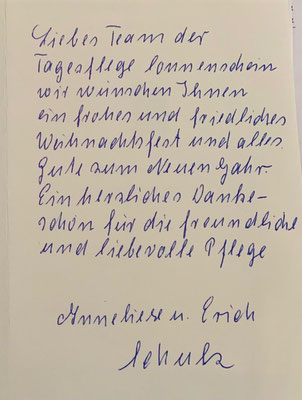 Liebes Team der
Tagespflege Sonnenschein
wir wünschen Ihnen
ein frohes und friedliches
Weihnachtsfest und alles
Gute zum Neuen Jahr.
Ein herzliches Danke-
schön für die freundliche
und liebevolle Pflege
Anneliese u. Erich
Schulz